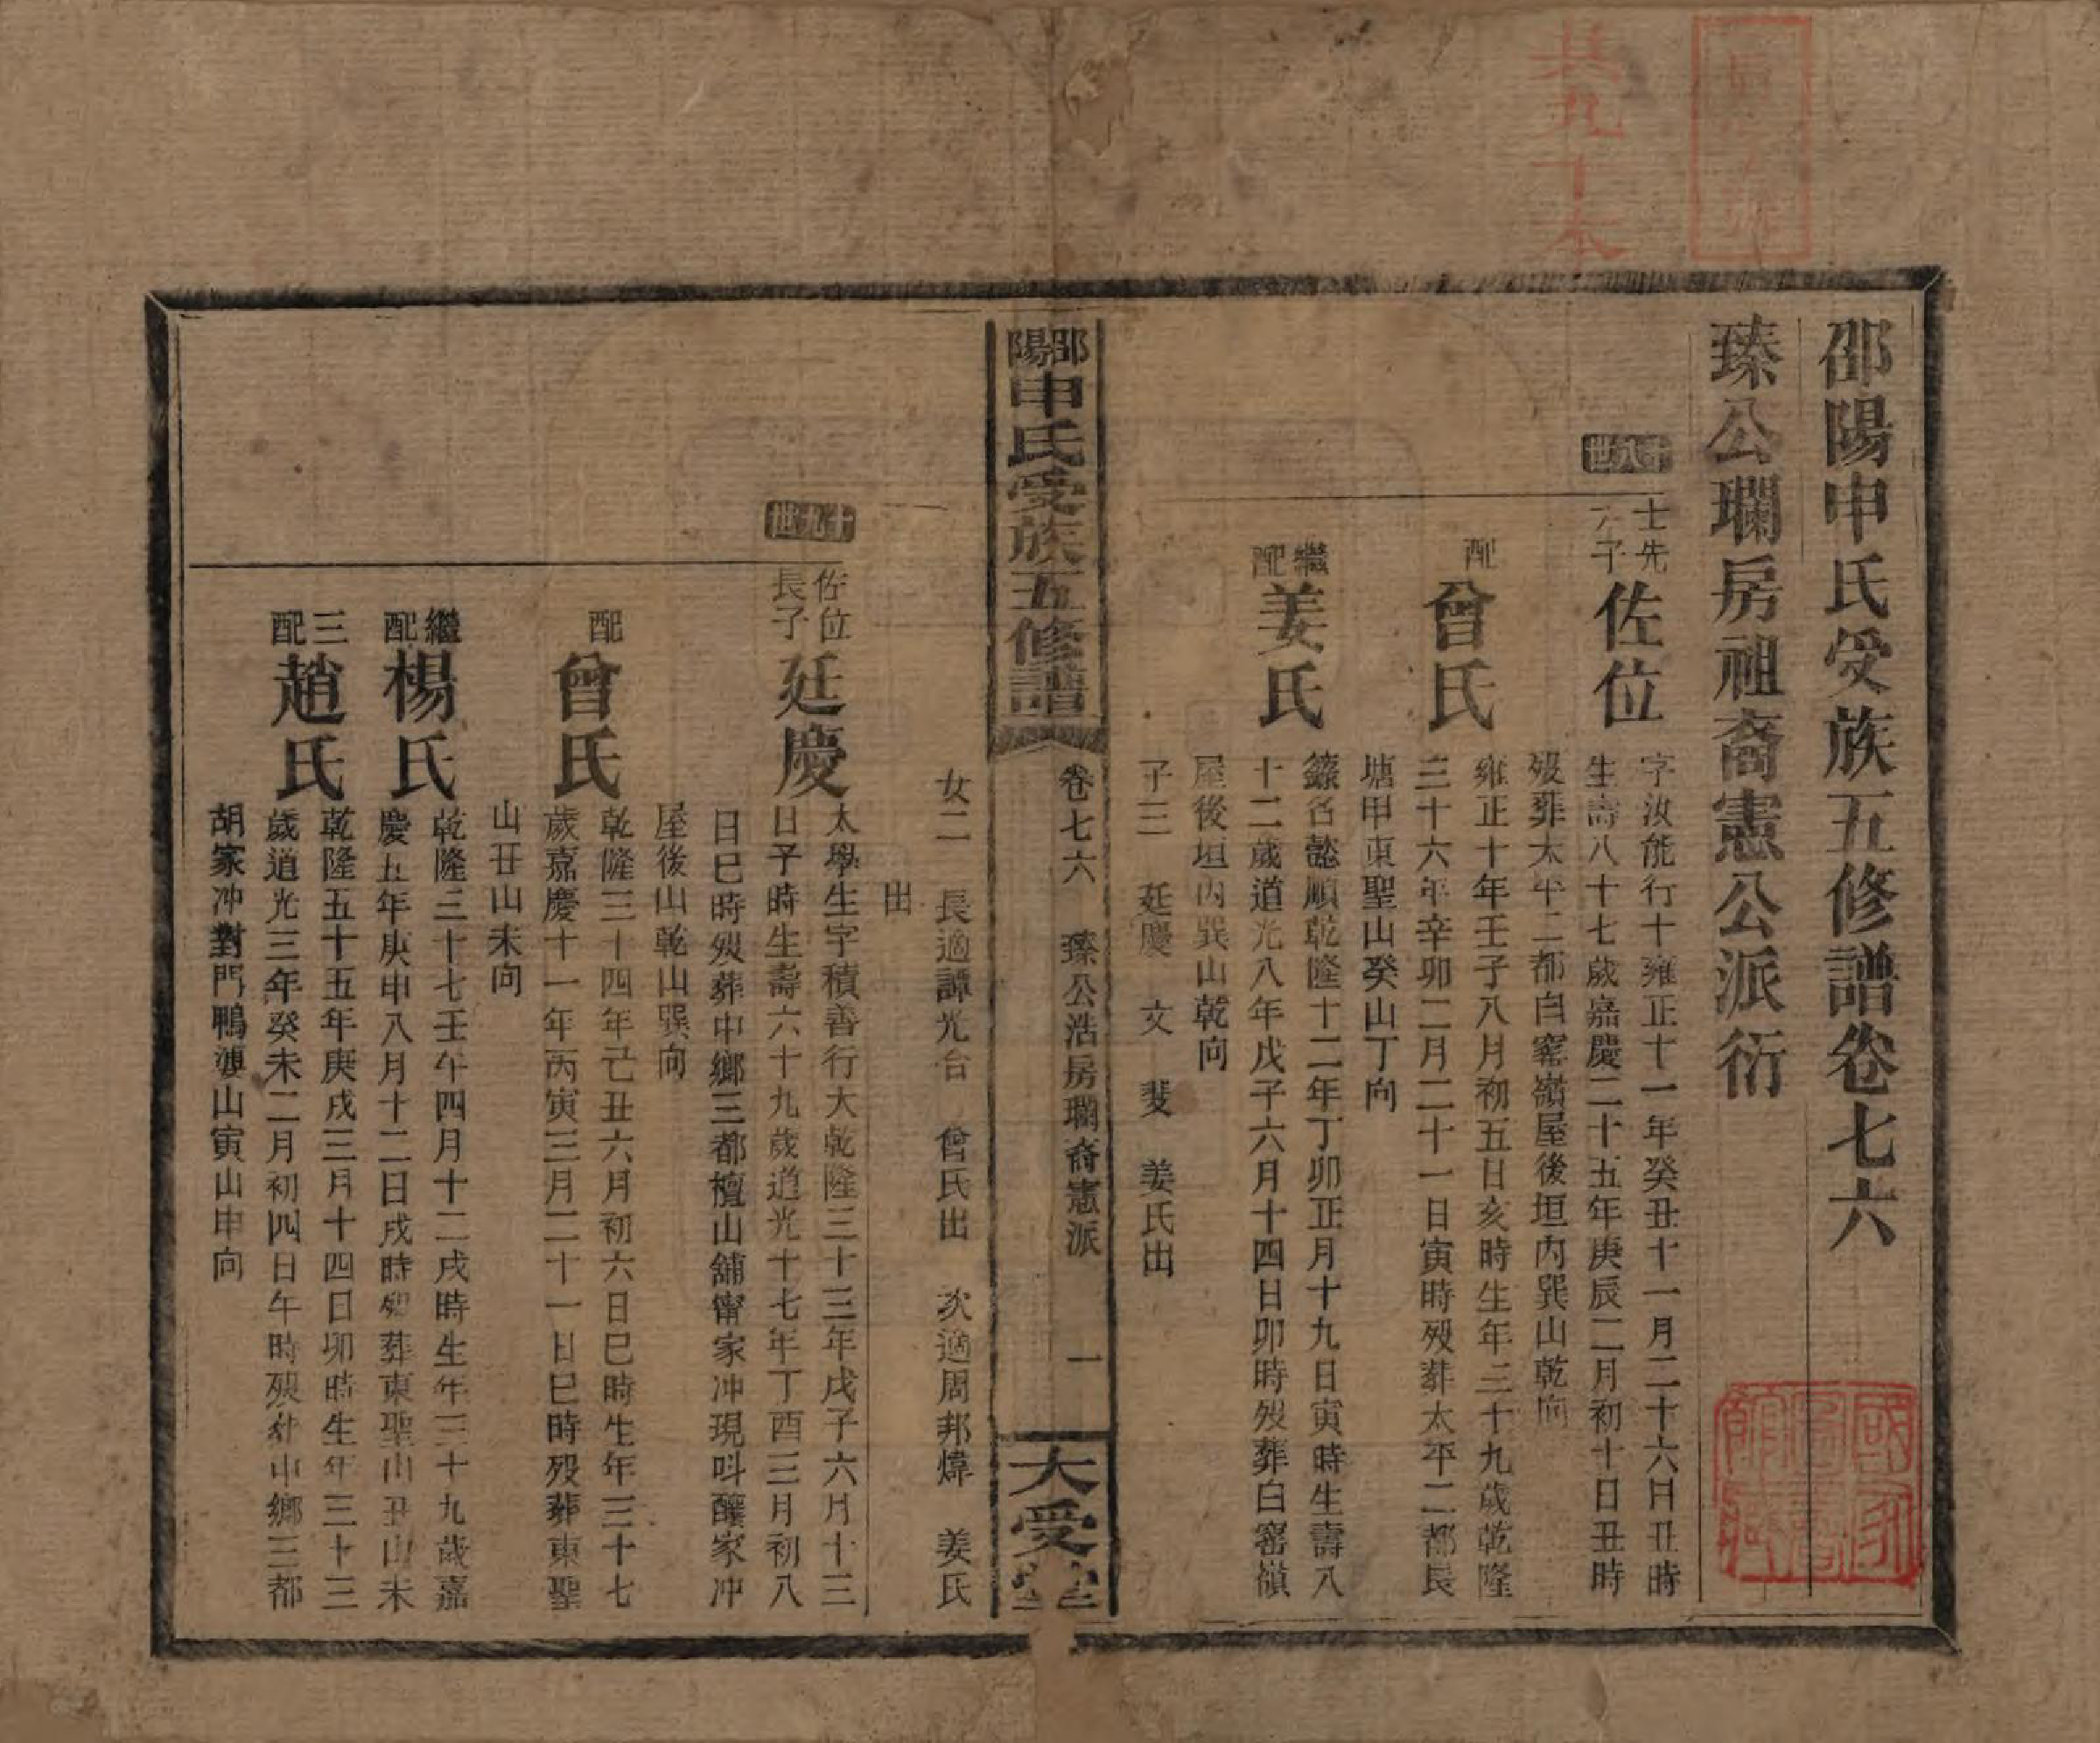 共九十本
邵陽申氏受族五修譜卷七六
臻公瓓房祖裔憲公派衍
十八世
士先
子
佐位
字汝能行十雍正十一年癸丑十一月二十六日丑時
生壽八十七歲嘉慶二十五年庚辰二月初十日丑時
歿葬太平二都白窰嶺屋後垣內巽山乾向
配
曾氏
雍正十年壬子八月初五日亥時生年三十九歲乾隆
三十六年辛卯二月二十一日寅時歿葬太平二都長
塘甲東聖山癸山丁向
繼配
姜氏
籙名懿順乾隆十二年丁卯正月十九日寅時生壽八
十二歲道光八年戊子六月十四日卯時歿葬白窰嶺
屋後垣內巽山乾向
子三 廷慶 文 斐 姜氏出
邵陽申氏受族五修譜
卷七六 臻公浩房瓓裔憲派 一
大受堂
女二 長適譚光台 曾氏出 次適周邦煒 姜氏
出
十九世
佐位
長子
廷慶
太學生字積善行大乾隆三十三年戊子六月十三
日子時生壽六十九歲道光十七年丁酉三月初八
日巳時歿葬中鄉三都檀山舖甯家冲現呌釀家冲
屋後山乾山巽向
配
曾氏
乾隆三十四年己丑六月初六日巳時生年三十七
歲嘉慶十一年丙寅三月二十一日巳時歿葬東聖
山丑山未向
繼配
楊氏
乾隆三十七壬午四月十二戌時生年三十九歲嘉
慶五年庚申八月十二日戌時歿葬東聖山丑山未
三配
趙氏
乾隆五十五年庚戌三月十四日卯時生年三十三
歲道光三年癸未二月初四日午時歿葬中鄉三都
胡家冲對門鴨婆山寅山申向